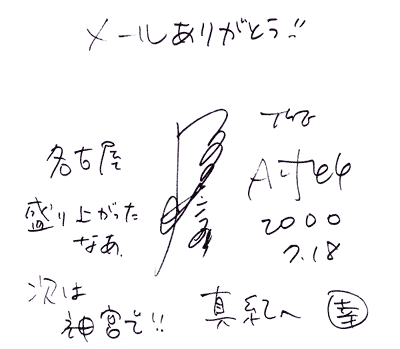 メールありがとう!!
名古屋
盛り上がった
なあ.
次は
神宮で!!
THE
ALFEE
2000
7.18
真紀へ
幸